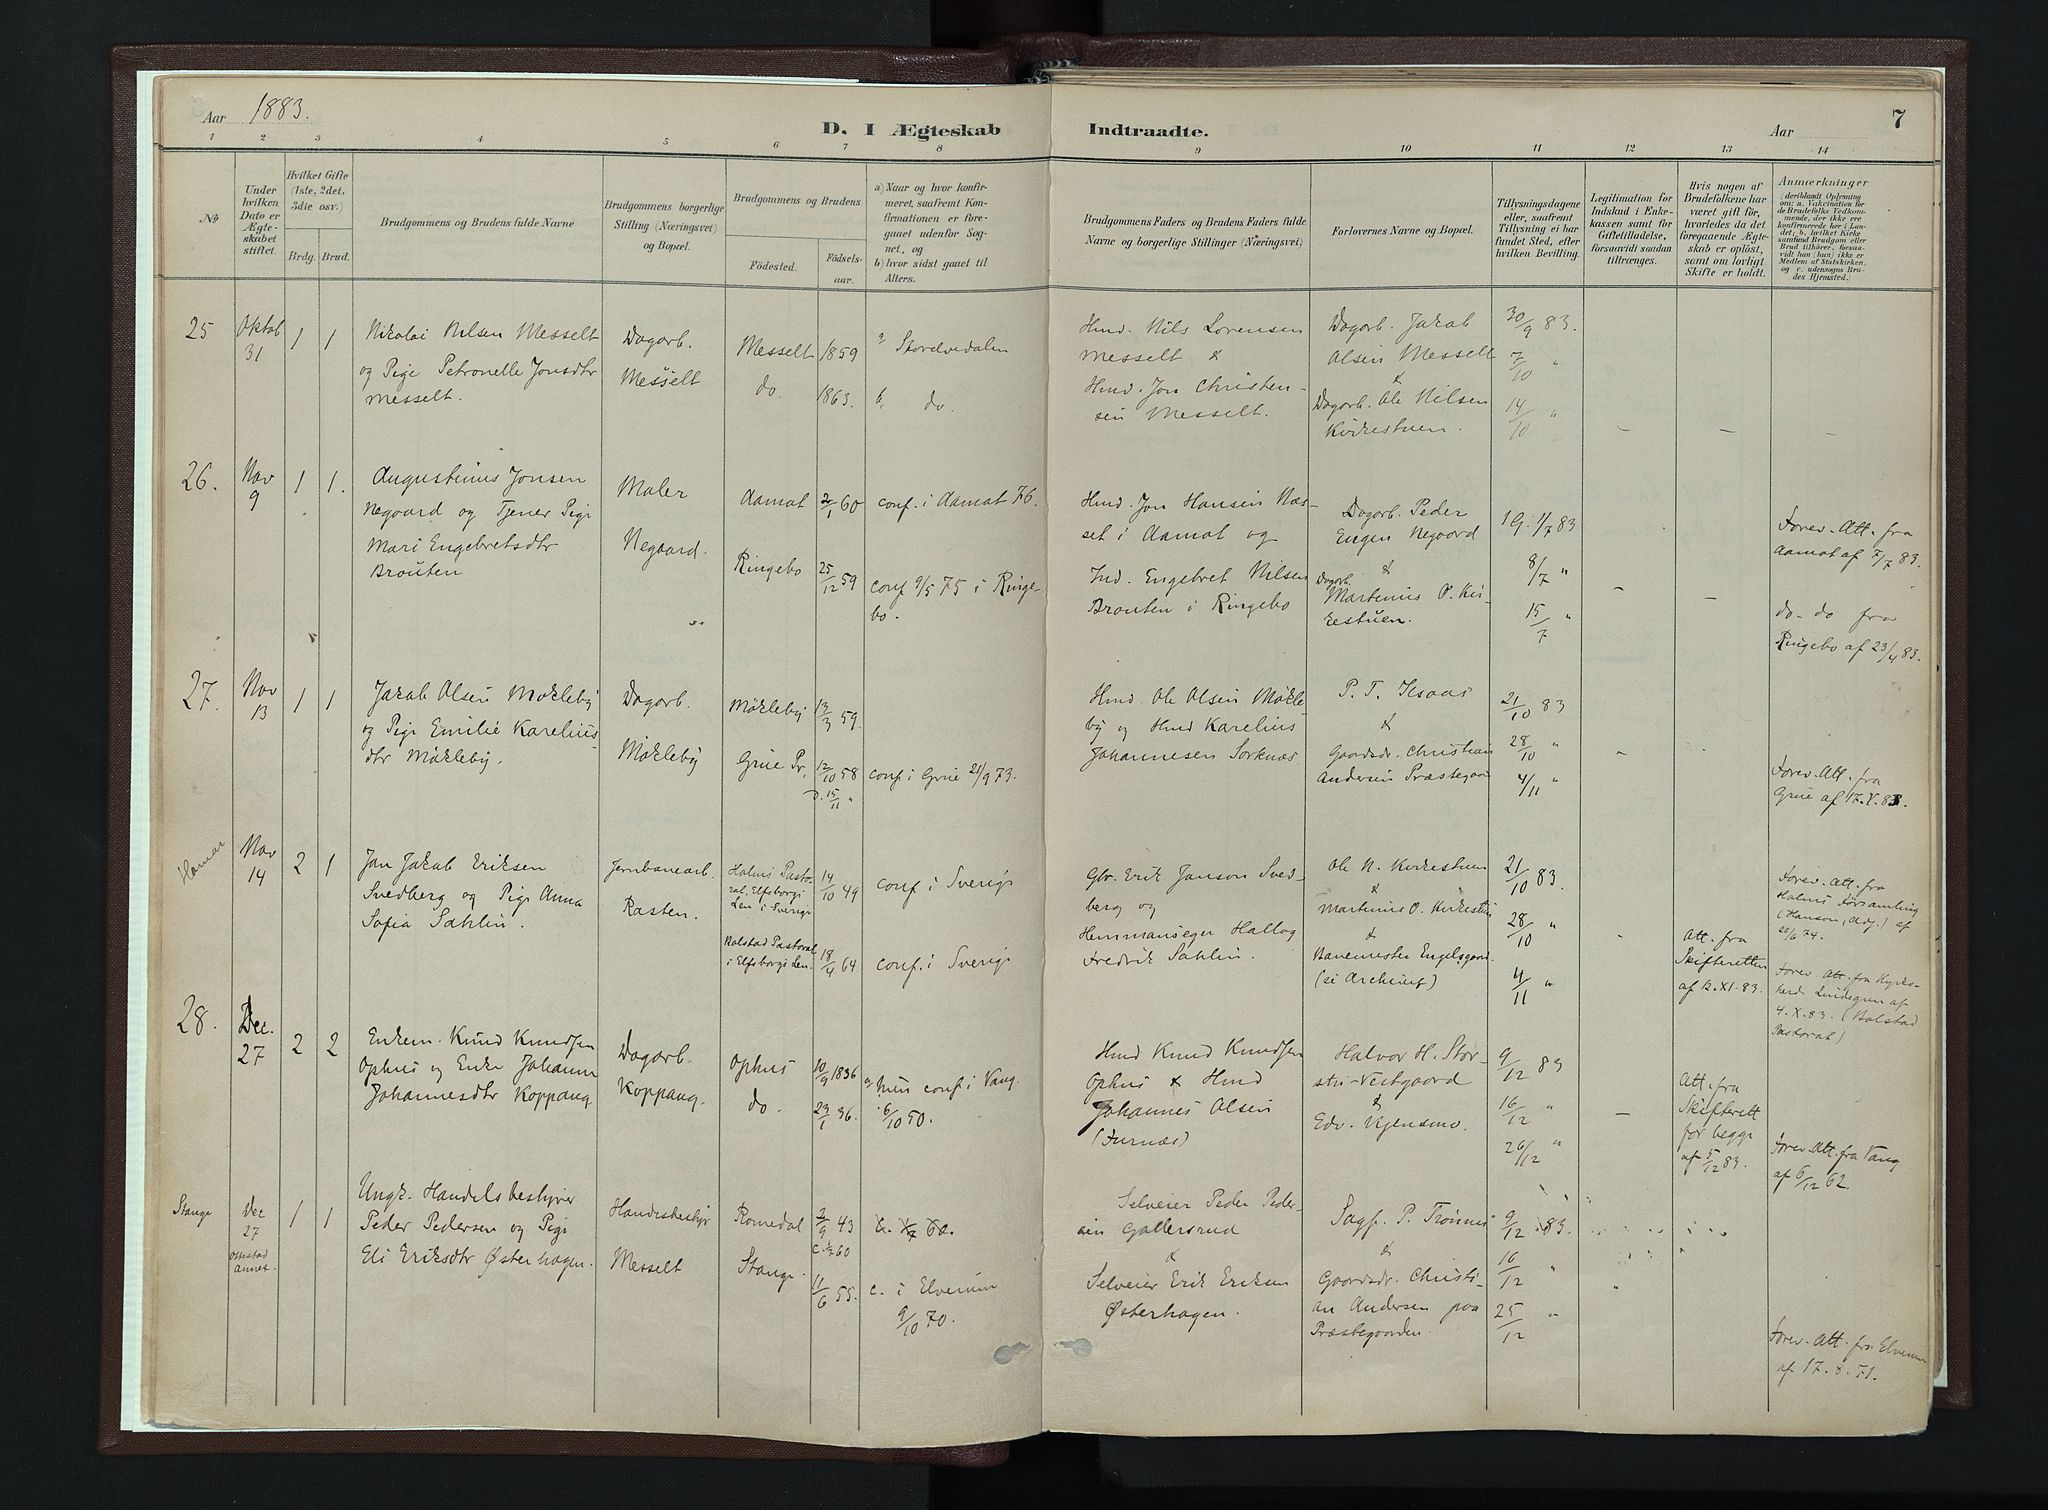 Aar 1883.
D. I Ægteskab
Indtraadte.
Aar
7
1 2 3 4 5 6 7 8 9 10 11 12 13 14
No
Under
hvilken
Dato er
Ægte-
skabet
stiftet.
Hvilket Gifte
(1ste, 2det,
3die osv.)
Brdg. Brud.
Brudgommens og Brudens fulde Navne
Brudgommens borgerlige
Stilling (Næringsvei)
og Bopæl.
Brudgommens og Brudens
Födested.
Födsels-
aar.
a) Naar og hvor konfir-
meret, saafremt Kon-
firmationen er fore-
gaaet udenfor Sog-
net, og
b) hvor sidst gaaet til
Alters.
Brudgommens Faders og Brudens Faders fulde
Navne og borgerlige Stillinger (Næringsvei)
Forlovernes Navne og Bopæl.
Tillysningsdagene
eller, saafremt
Tillysning ei har
fundet Sted, efter
hvilken Bevilling.
Legitimation for
Indskud i Enke-
kassen samt for
Giftetilladelse,
forsaavidt saadan
tiltrænges.
Hvis nogen af
Brudefolkene har
været gift för,
hvorledes da det
foregaaende Ægte-
skab er oplöst,
samt om lovligt
Skifte er holdt.
Anmærkninger
(deriblandt Oplysning
om: a. Vakcination for
de Brudefolks Vedkom-
mende, der ikke ere
konfirmerede her i Lan-
det; b. hvilket Kirke-
samfund Brudgom eller
Brud tilhører, forsaa-
vidt han (hun) ikke er
Medlem af Statskirken,
og c. udensogns Bru-
des Hjemsted.)
25
Oktob
31
1 1
Nikolai Nilsen Messelt
og Pige Petronelle Jonsdtr
Messelt.
Dagarb.
Messelt
Messelt 1859
do. 1863.
a, Storelvedalen
b. do.
Hmd. Nils Lorensen
Messelt &
Hmd. Jon Christen-
sen Messelt.
Dagarb. Jakob
Olsen Messelt
&
Dagarb. Ole Nilsen
Kirkestuen.
30/9 83.
7/10 "
14/10 "
26.
Nov
9
1 1.
Augustinus Jonsen
Negaard og Tjener Pige
Mari Engebretsdtr
Brouten
Maler
Negaard.
Aamot 2/1 60
Ringebo 25/12 59
conf. i Aamot 76.
conf 9/5 75 i Ringe-
bo.
Hmd. Jon Hansen Næs-
set i Aamot og
Ind. Engebret Nilsen
Brouten i Ringebo
Dagarb. Peder
Engen Negaard
&
Dagarb.
Martinius O. Kir-
kestuen.
1 G. 1/7 83
8/7 "
15/7 "
Forev. Att. fra
Aamot af 7/7 83.
do. do fra
Ringebo af 23/4 83.
27.
Nov
13
1 1
Jakob Olsen Møkleby
og Pige Emilie Karelius-
dtr Møkleby.
Dagarb.
Møkleby
Møkleby 13/3 59.
Grue Pr. 12/10 58
D. 15/11 "
conf. i Grue 21/9 73.
Hmd. Ole Olsen Møkle-
by og Hmd Karelius
Johannesen Sorknæs.
P. T. Isaas
&
Gaardsdr. Christian
Andersen Præstegaar
21/10 83
28/10 "
4/11 "
Forev. Att. fra
Grue af 17. X. 83.
Hamar
Nov
14
2 1
Jan Jakob Eriksen
Svedberg og Pige Anna
Sofia Sahlin.
Jernbanearb.
Rasten.
Holms Pasto-
rat, Elfsborgs
Len i Sverige
14/10 49
Bolstad Pastorat
i Elfsborgs Len.
18/4 64
conf. i Sverige
conf. i Sverige
Gbr. Erik Janson Sved-
berg og
Hemmanseger Hallog
Fredrik Sahlin.
Ole N. Kirkestuen
&
Martinius O. Kirkestuen
&
Banemester Engelsgaard.
(se Archivet)
21/10 83.
28/10 "
4/11 "
Att. fra
Skifteretten
af 12. XI. 83.
Forev. Att. fra
Holms Församling
(Hanson, Adj.) af
26/6 74.
Forev. Att. fra Kyrko-
herde Lindegren af
4. X. 83. (Bolstad
Pastorat)
28.
Dec.
27
2 2
Enkem. Knud Knudsen
Ophus og Enke Johanne
Johannesdtr Koppang.
Dagarb.
Koppang.
Ophus 10/9 1836
do. 23/1 36.
a, hun conf. i Vang.
6/10 50.
Hmd Knud Knudsen
Ophus & Hmd
Johannes Olsen
(Furnæs)
Halvor H. Stor-
stu-Vestgaard
&
Edv. Kjensmo.
9/12 83
16/12 "
26/12 "
Att. fra
Skifterett
for begge
af 5/12 83.
Forev. Att. fra Vang
af 6/12 62.
Stange
Dec
27
Ottestad
annex.
1 1
Ungk. Handelsbestyrer
Peder Pedersen og Pige
Eli Eriksdtr Østerhagen.
Handelsbestyr
Messelt
Romedal 2/9 43
Stange. 11/6 55.
c. i Elverum
9/10 70.
Selveier Peder Peder-
sen Gallersrud
&
Selveier Erik Eriksen
Østerhagen.
Sagf. P. Trønnes
&
Gaardsdr. Christi-
an Andersen paa
Præstegaarden.
9/12 83.
16/12 "
25/12 "
Forev. Att. fra Elverum
af 17. 8. 51.